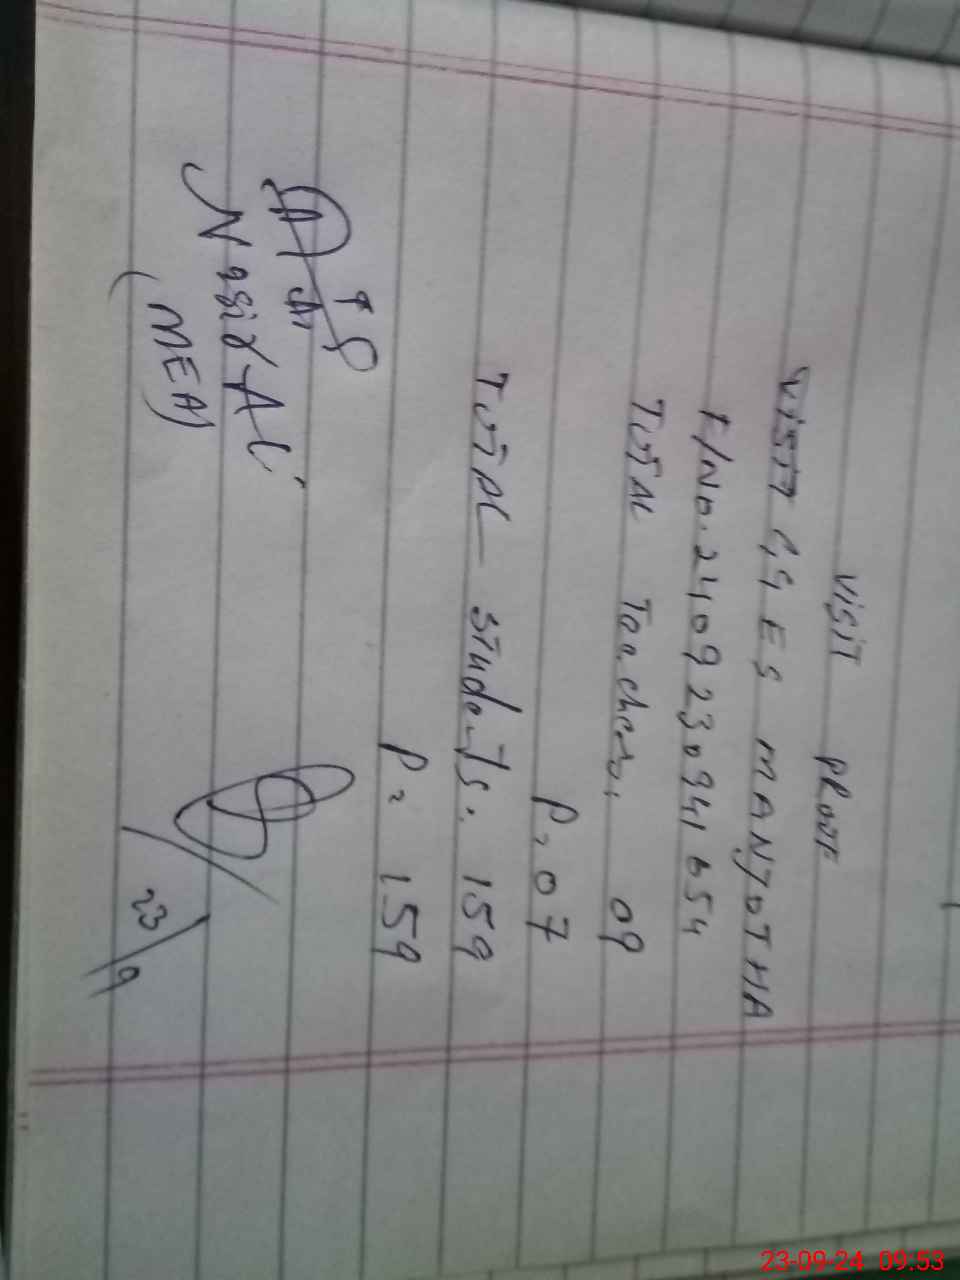 VISIT PROOF
VISIT GGES MANJOTHA
F/NO.2409230941654
TOTAL Teachers. 09
P. 07
TOTAL Students. 159
P. 159
Nasir Ali
(MEA)
23/9
23-09-24 09:53